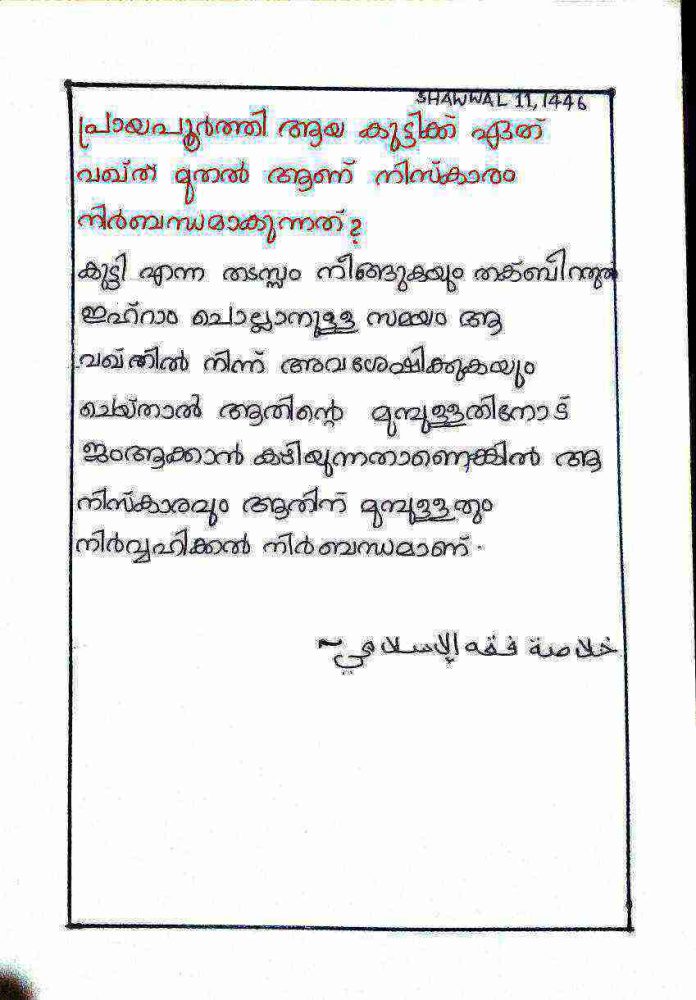 SHAWWAL 11, 1446
പ്രായപൂർത്തി ആയ കുട്ടിക്ക് ഏത്
വഖ്ത് മുതൽ ആണ് നിസ്കാരം
നിർബന്ധമാകുന്നത്?
കുട്ടി എന്ന തടസ്സം നീങ്ങുകയും തക്ബീറത്തുൽ
ഇഹ്റാം ചൊല്ലാനുള്ള സമയം ആ
വഖ്തിൽ നിന്ന് അവശേഷിക്കുകയും
ചെയ്താൽ ആതിന്റെ മുമ്പുള്ളതിനോട്
ജംആക്കാൻ കഴിയുന്നതാണെങ്കിൽ ആ
നിസ്കാരവും ആതിന് മുമ്പുള്ളതും
നിർവ്വഹിക്കൽ നിർബന്ധമാണ്.
خلاصة فقه الإسلامي~